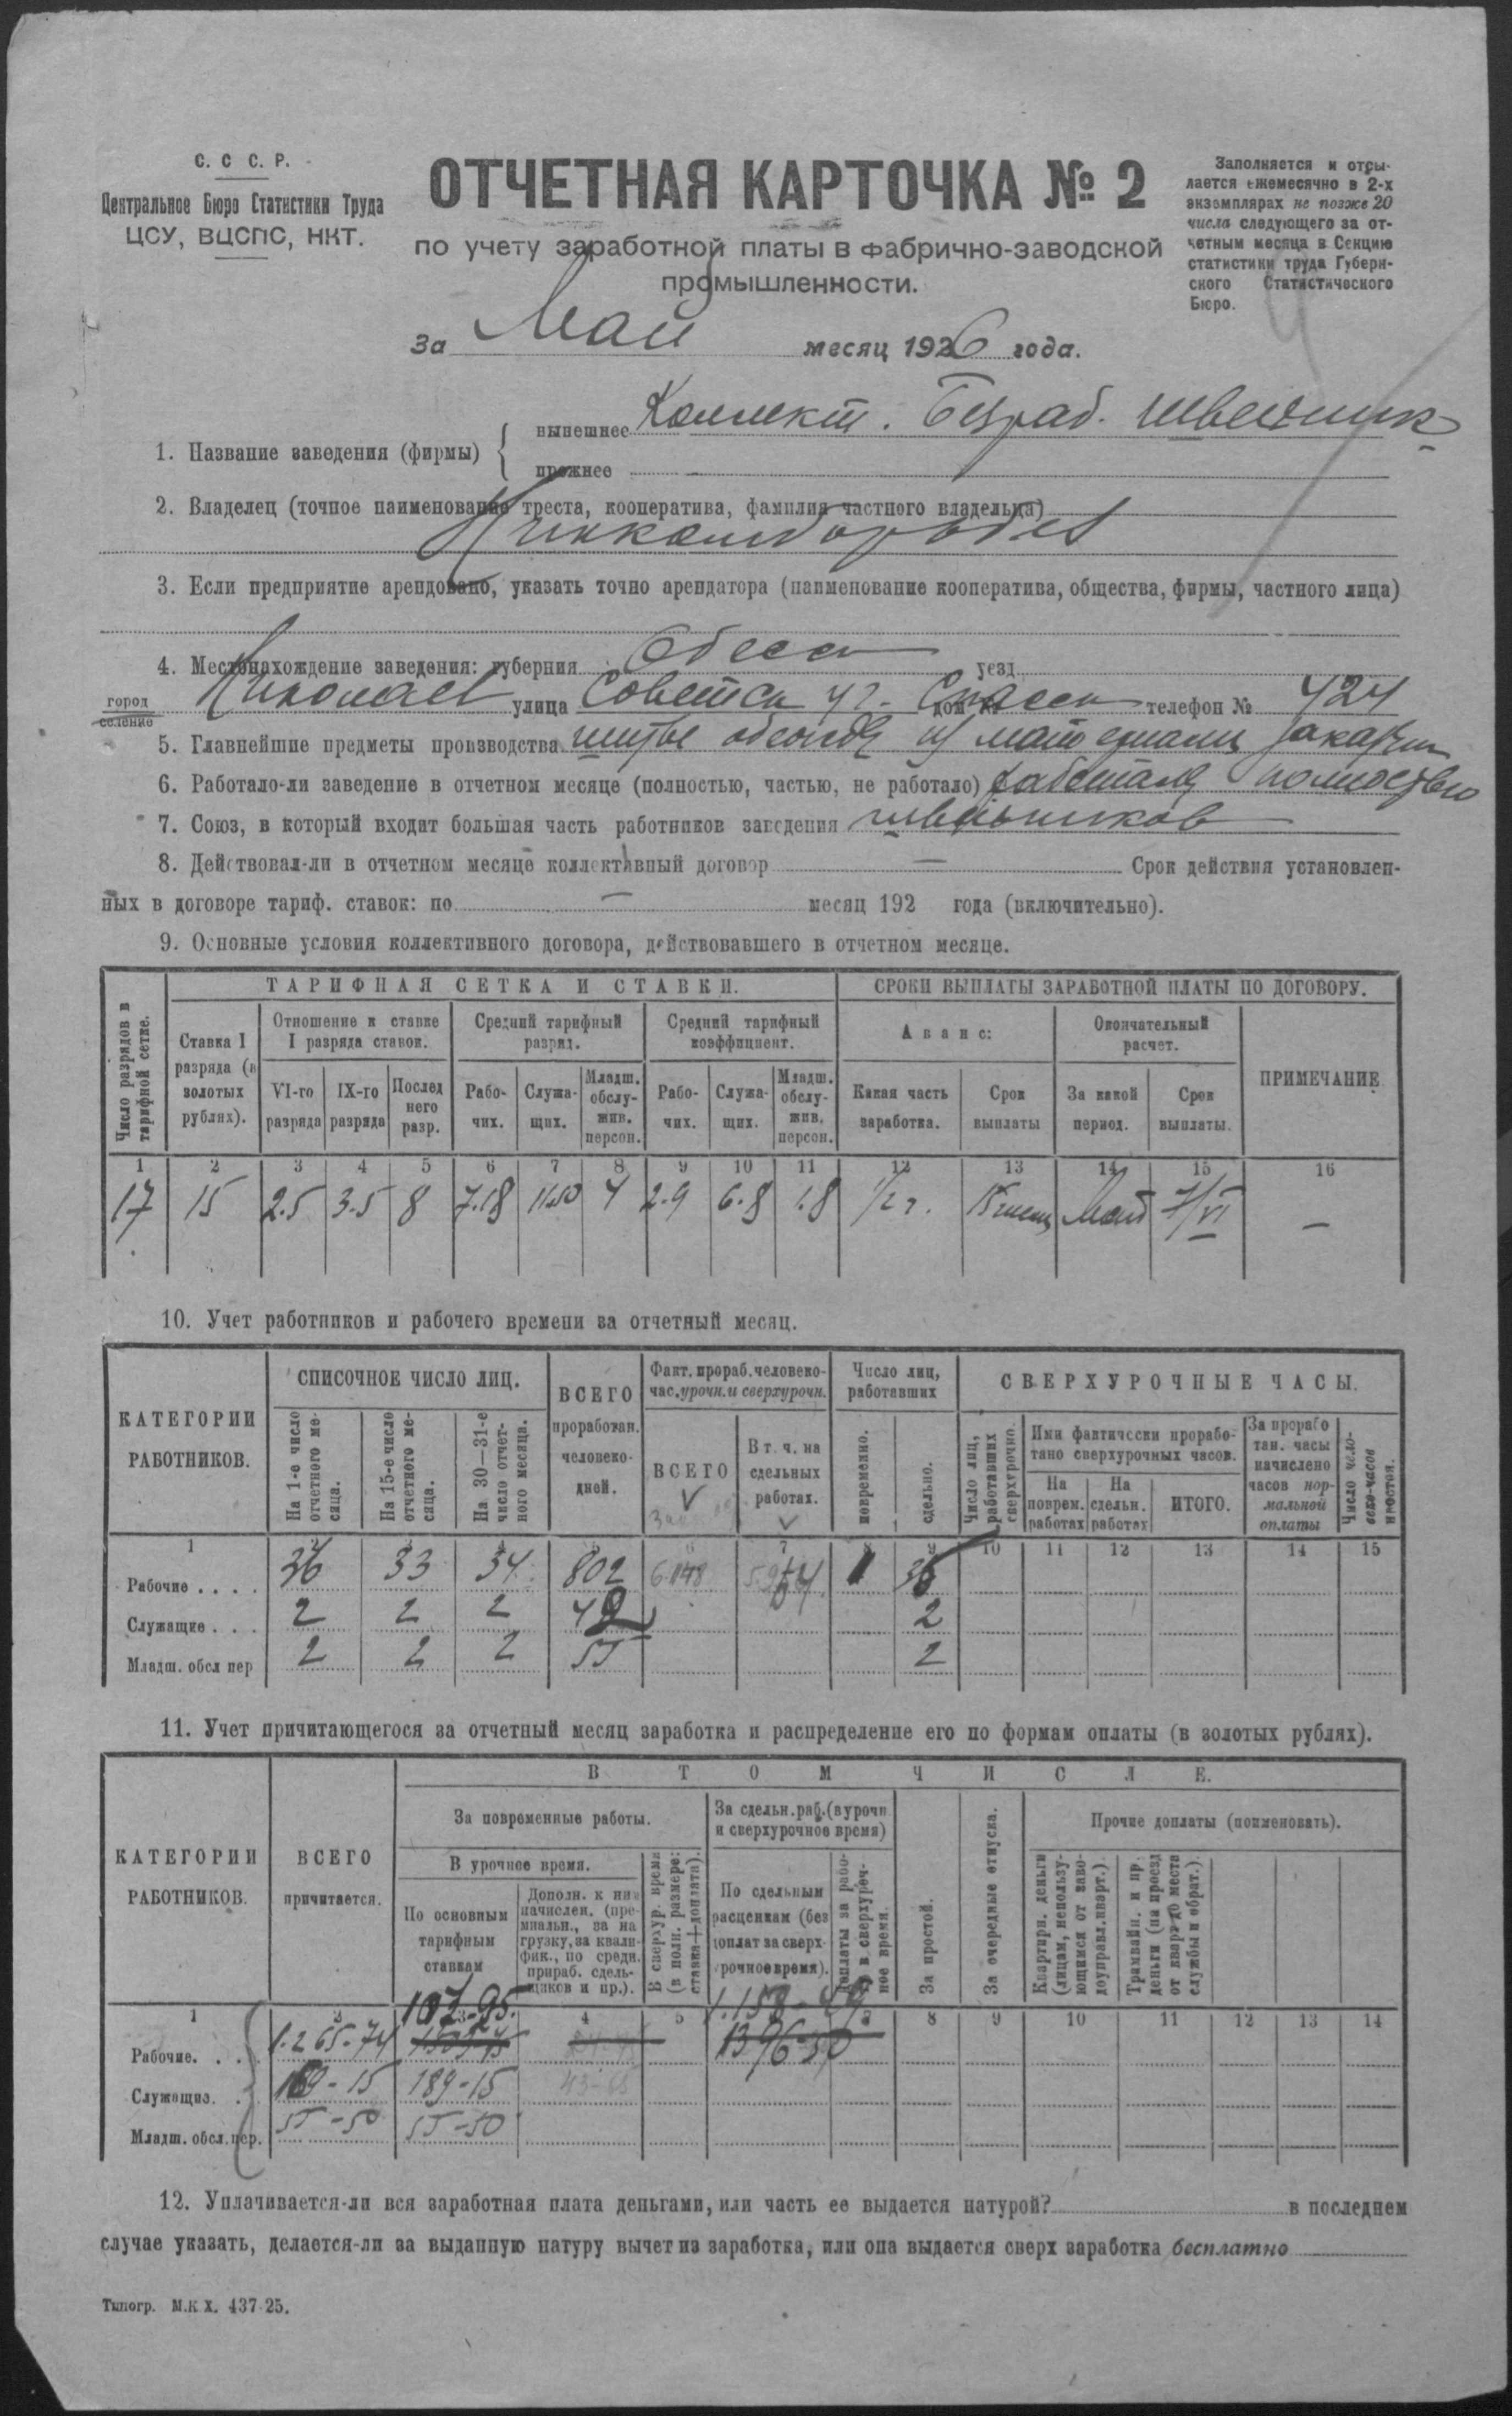 С. С С. Р.
Центральное Бюро Статистики Труда
ЦСУ, ВЦСПС, НКТ.
ОТЧЕТНАЯ КАРТОЧКА № 2
по учету заработной платы в фабрично-заводской
промышленности.
За Май месяц 1926 года.
Заполняется и отсы-
лается ежемесячно в 2-х
экземплярах не позже 20
числа следующего за от-
четным месяца в Секцию
статистики труда Губерн-
ского Статистического
Бюро.
1. Название заведения (фирмы) { нынешнее Коллект. Безраб. швейник
прежнее
2. Владелец (точное наименование треста, кооператива, фамилия частного владельца)
3. Если предприятие арендовано, указать точно арендатора (наименование кооператива, общества, фирмы, частного лица)
4. Местонахождение заведения: губерния Одесс уезд
город Николаев улица Советск уг. Спасск дом № телефон № 424
селение
5. Главнейшие предметы производства шитье одежды из материала заказчик
6. Работало-ли заведение в отчетном месяце (полностью, частью, не работало) работало полностью
7. Союз, в который входит большая часть работников заведения швейников
8. Действовал-ли в отчетном месяце коллективный договор — Срок действия установлен-
ных в договоре тариф. ставок: по — месяц 192 года (включительно).
9. Основные условия коллективного договора, действовавшего в отчетном месяце.
Число разрядов в тарифной сетке.
ТАРИФНАЯ СЕТКА И СТАВКИ.
СРОКИ ВЫПЛАТЫ ЗАРАБОТНОЙ ПЛАТЫ ПО ДОГОВОРУ.
Ставка I разряда (в золотых рублях).
Отношение к ставке I разряда ставок.
Средний тарифный разряд.
Средний тарифный коэффициент.
Аванс:
Окончательный расчет.
ПРИМЕЧАНИЕ
VI-го разряда IX-го разряда Последнего разр.
Рабо-чих. Служа-щих. Младш. обслу-жив. персон.
Рабо-чих. Служа-щих. Младш. обслу-жив. персон.
Какая часть заработка. Срок выплаты За какой период. Срок выплаты.
1 2 3 4 5 6 7 8 9 10 11 12 13 14 15 16
17 15 2.5 3.5 8 7.18 11.50 4 2.9 6.8 1.8 1/2 Май 7/VI —
10. Учет работников и рабочего времени за отчетный месяц.
КАТЕГОРИИ РАБОТНИКОВ.
СПИСОЧНОЕ ЧИСЛО ЛИЦ.
На 1-е число отчетного ме-сяца.
На 15-е число отчетного ме-сяца.
На 30—31-е число отчет-ного месяца.
ВСЕГО проработан. человеко-дней.
Факт. прораб. человеко-час. урочн. и сверхурочн.
ВСЕГО
В т. ч. на сдельных работах.
Число лиц, работавших
повременно.
сдельно.
СВЕРХУРОЧНЫЕ ЧАСЫ.
Число лиц, работавших сверхурочно.
Ими фактически прорабо-тано сверхурочных часов.
На поврем. работах На сдельн. работах ИТОГО.
За прорабо тан. часы начислено часов нор-мальной оплаты
Число чело-веко-часов простоя.
1 6 7 8 9 10 11 12 13 14 15
Рабочие 36 33 34 802 1 35
Служащие 2 2 2 2
Младш. обсл пер 2 2 2 55 2
11. Учет причитающегося за отчетный месяц заработка и распределение его по формам оплаты (в золотых рублях).
КАТЕГОРИИ РАБОТНИКОВ.
ВСЕГО причитается.
В ТОМ ЧИСЛЕ.
За повременные работы.
В урочное время.
По основным тарифным ставкам
Дополн. к ним начислен. (пре-миальн., за на грузку, за квали-фик., по средн. прираб. сдель-щиков и пр.).
В сверхур. время (в полн. размере: ставка+доплата).
За сдельн. раб. (в урочн и сверхурочное время)
По сдельным расценкам (без доплат за сверх-урочное время).
Доплаты за рабо-ту в сверхуроч-ное время.
За простой.
За очередные отпуска.
Прочие доплаты (поименовать).
Квартирн. деньги (лицам, непользу-ющимся от заво-доуправл. кварт.).
Трамвайн. и пр. деньги (на проезд от кварт до места службы и обрат.).
1 2 3 4 5 8 9 10 11 12 13 14
107-95. 1.158-49
Рабочие. 1.265-74 1396-50
Служащие. 189-15 189-15 43-65
Младш. обсл. пер. 55-50 55-50
12. Уплачивается-ли вся заработная плата деньгами, или часть ее выдается натурой? в последнем
случае указать, делается-ли за выданную натуру вычет из заработка, или она выдается сверх заработка бесплатно
Типогр. М.К.Х. 437-25.